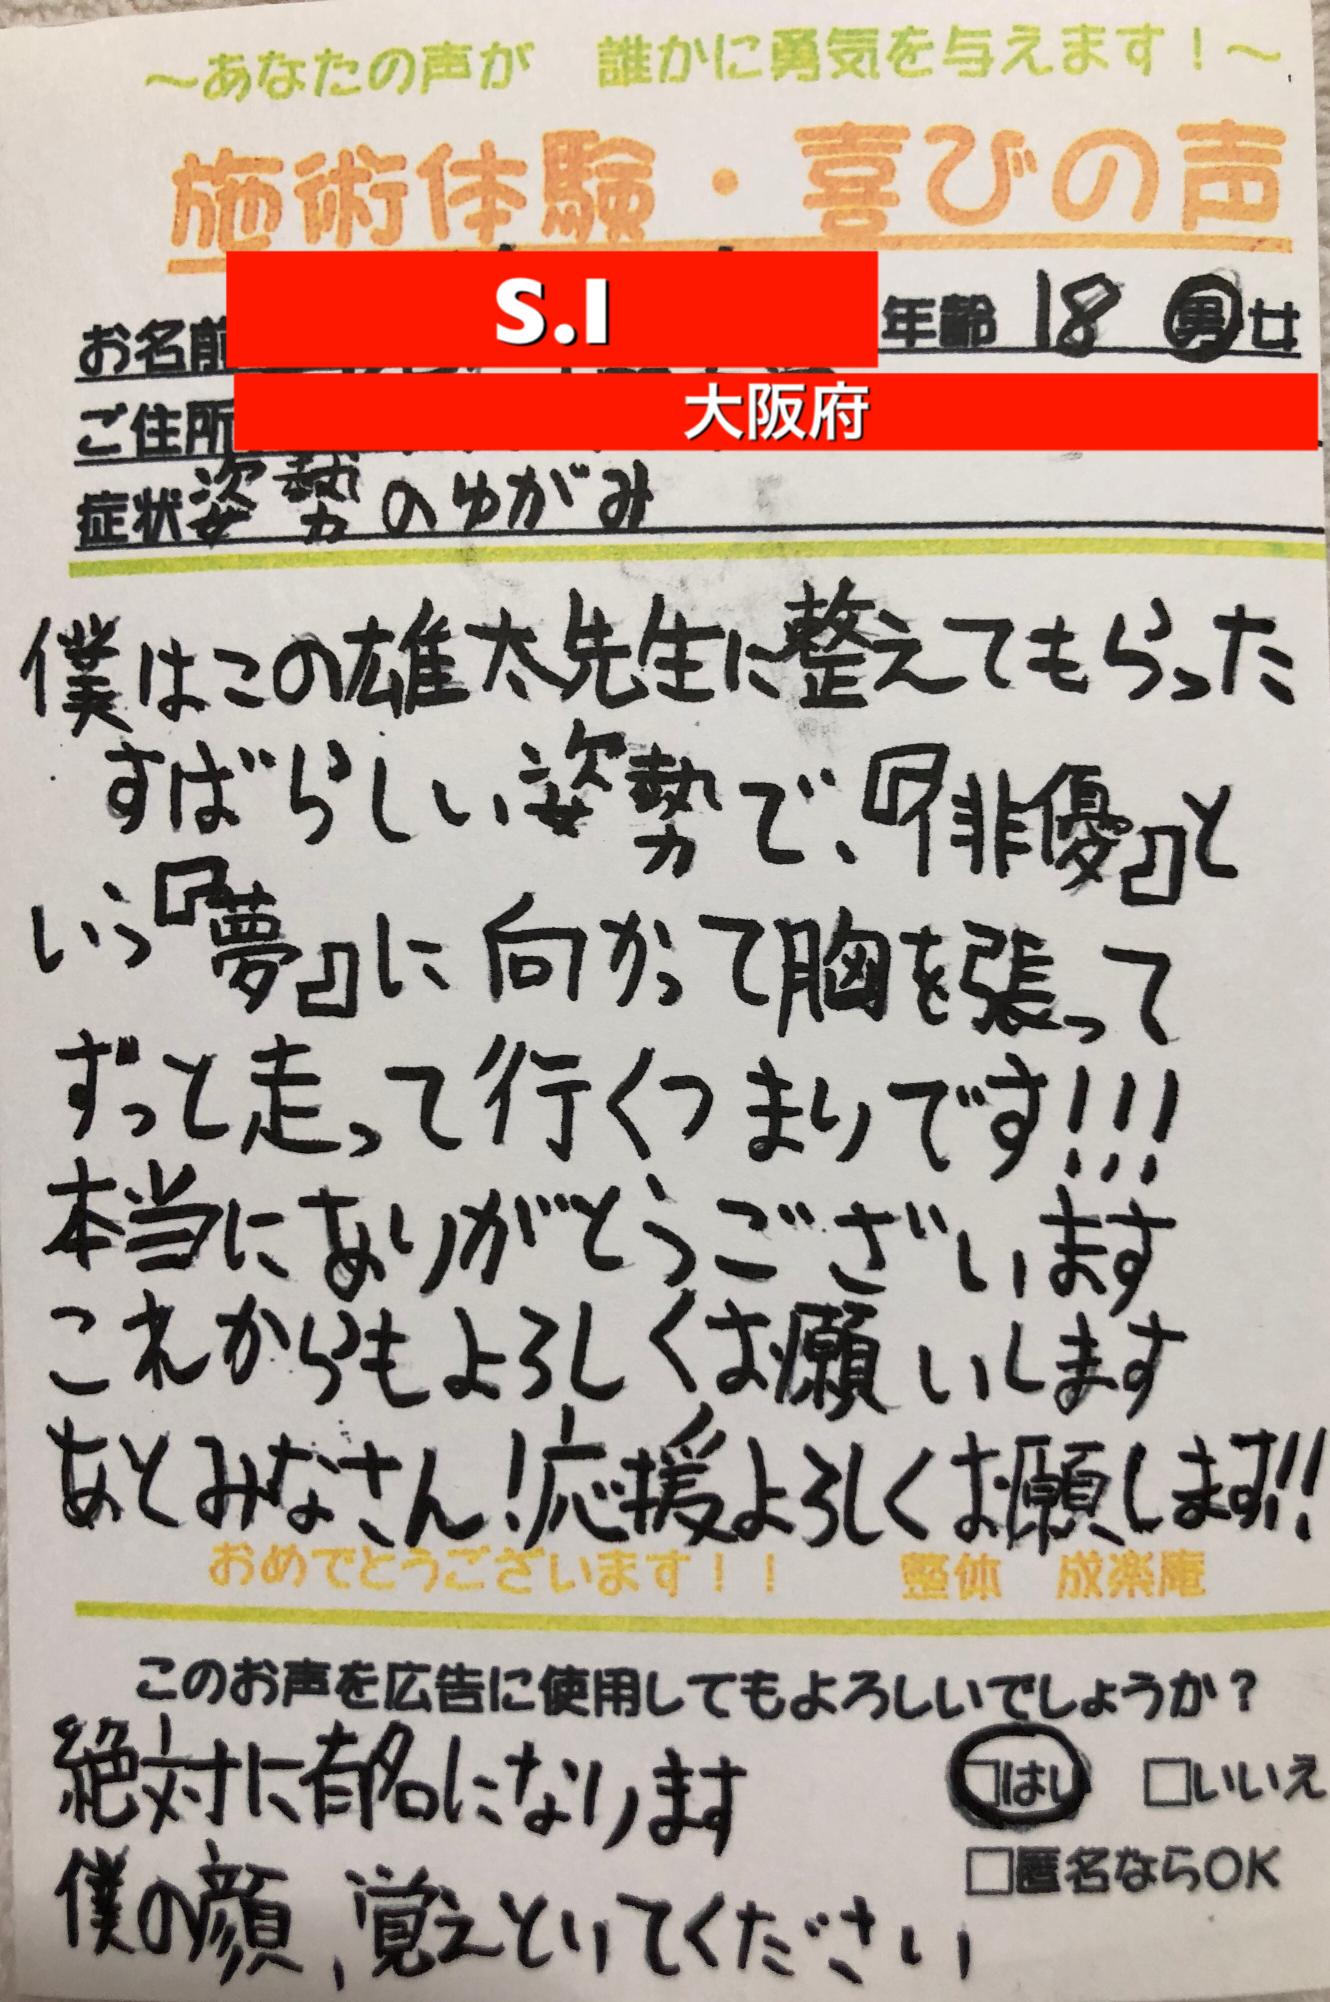 ～あなたの声が　誰かに勇気を与えます！～
施術体験・喜びの声
お名前 S.I 年齢 18 男 女
ご住所 大阪府
症状 姿勢のゆがみ
僕はこの雄太先生に整えてもらった
すばらしい姿勢で、『俳優』と
いう『夢』に向かって胸を張って
ずっと走って行くつまりです!!!
本当にありがとうございます
これからもよろしくお願いします
あとみなさん!応援よろしくお願します!!
おめでとうございます！！　整体　成楽庵
このお声を広告に使用してもよろしいでしょうか？
絶対に有名になります
□はい □いいえ
□匿名ならOK
僕の顔、覚えといてください